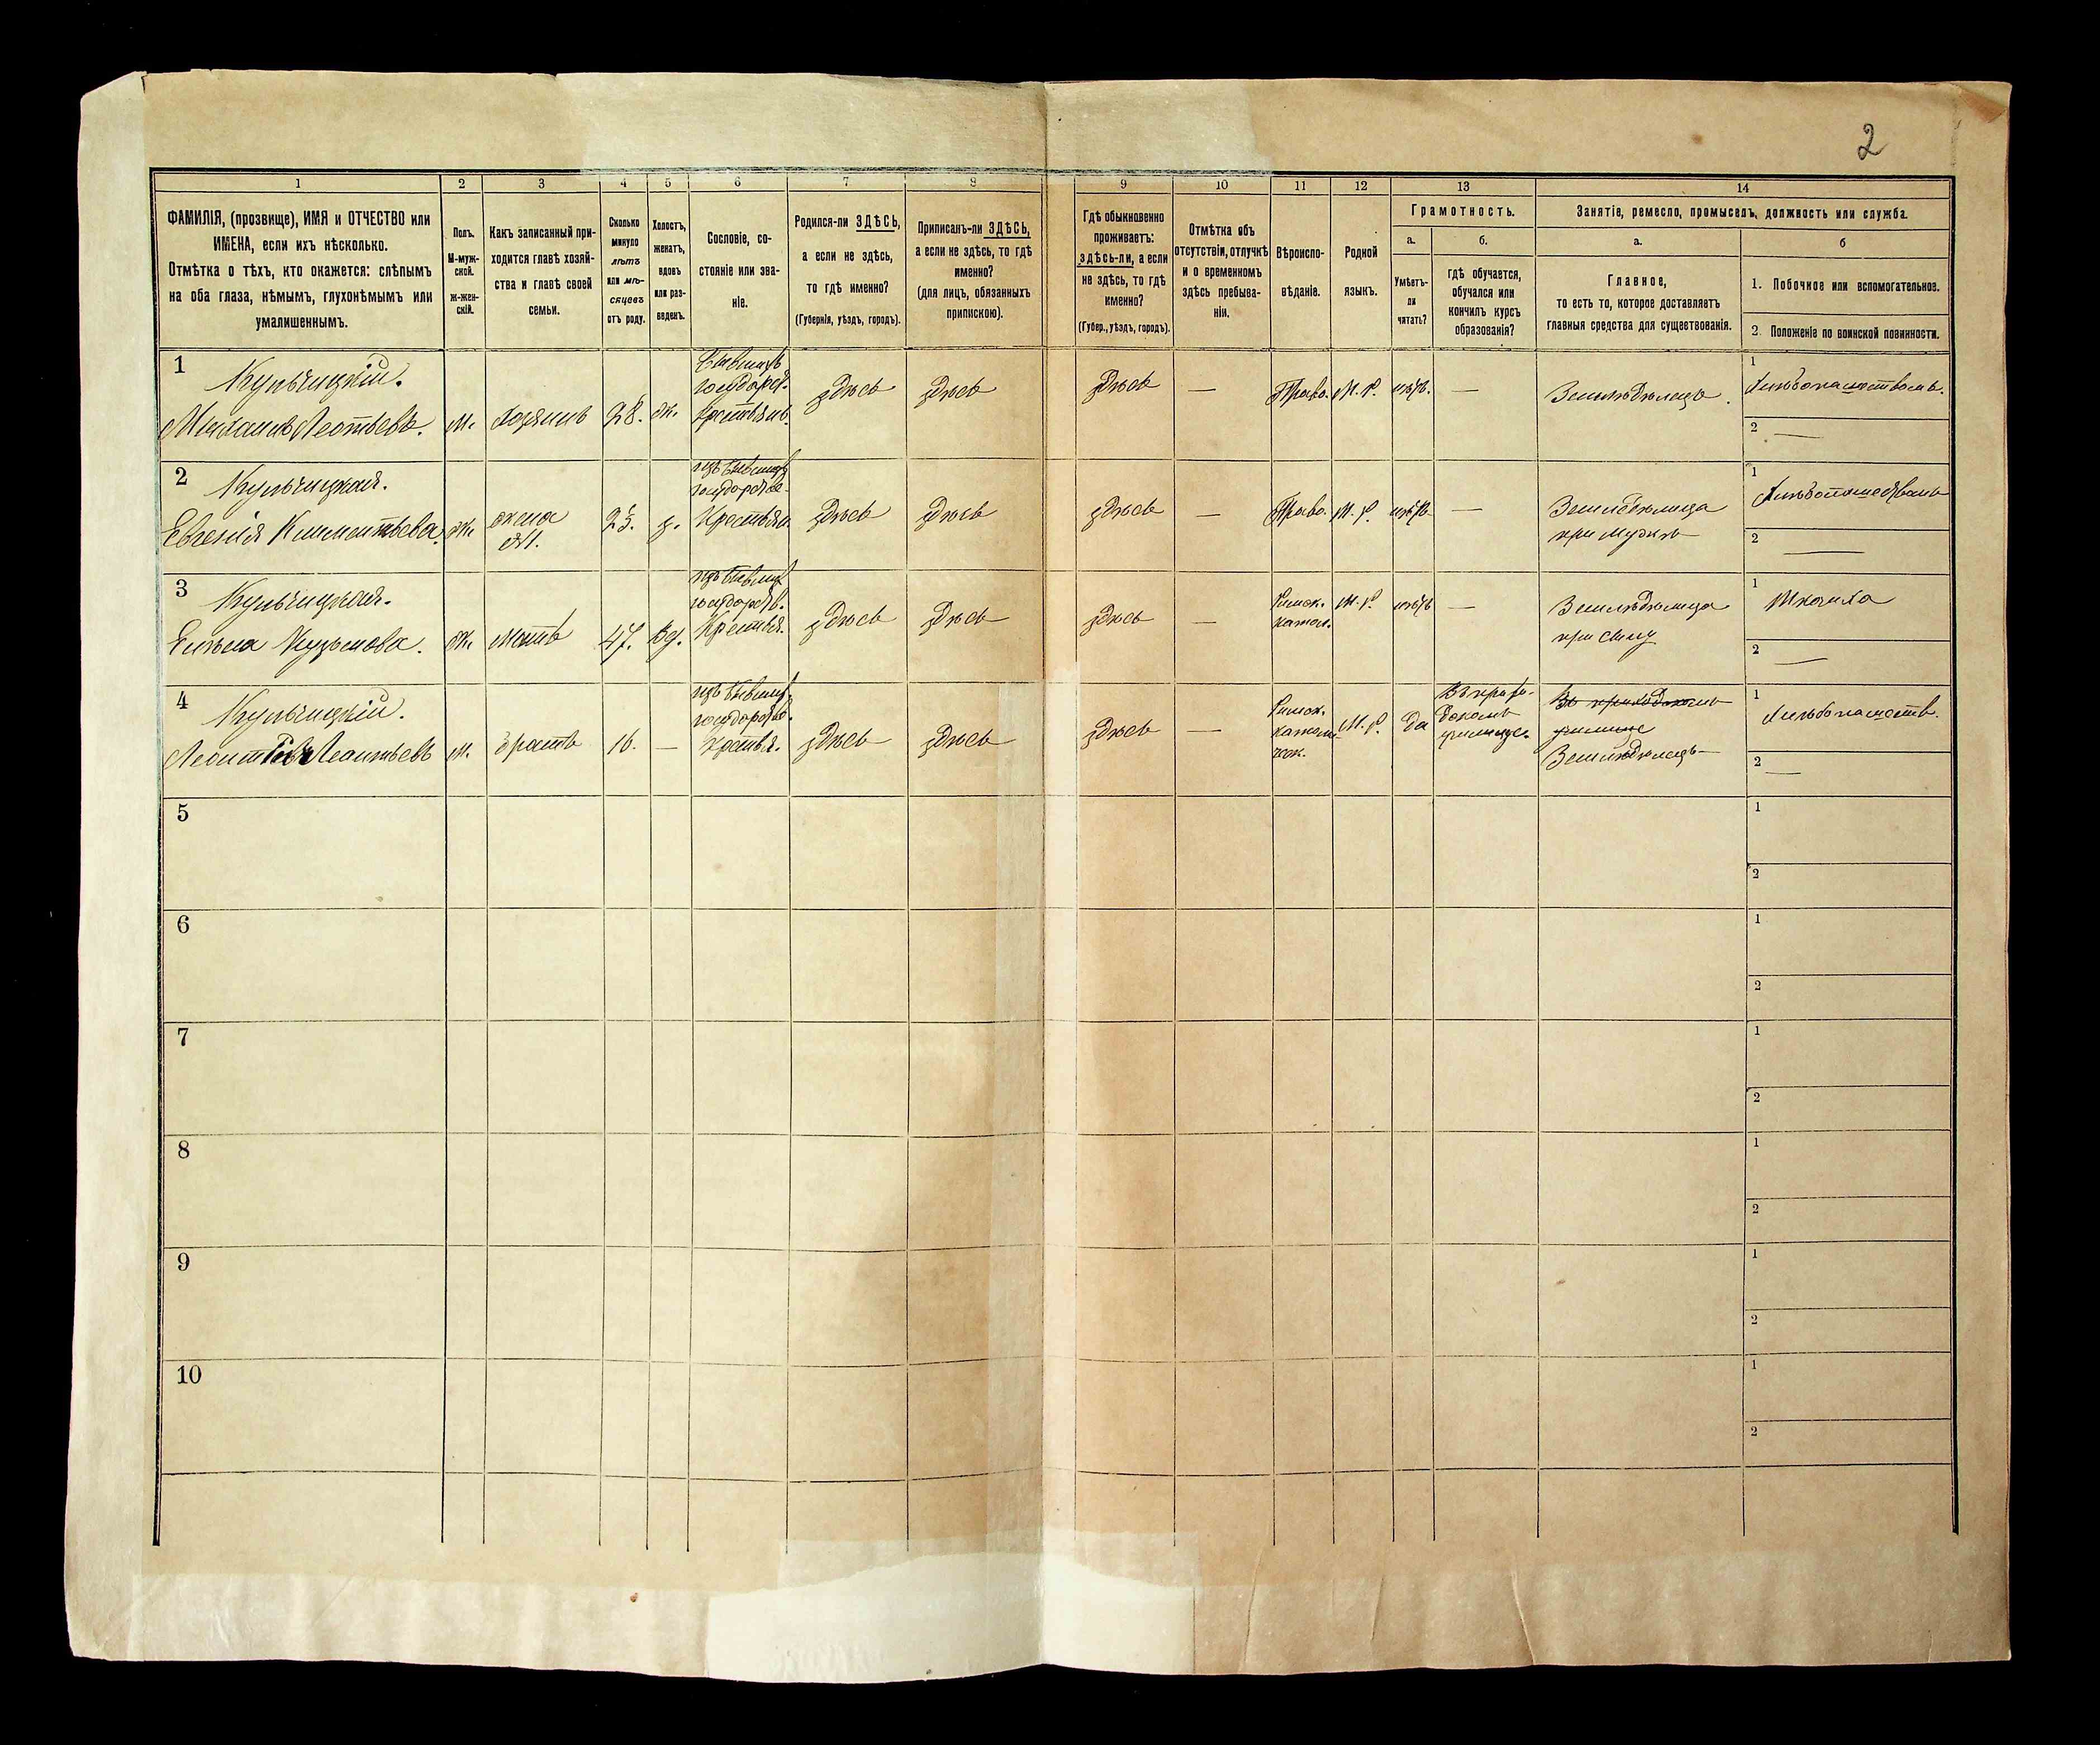 2
1
2
3
4
5
6
7
8
9
10
11
12
13
14
ФАМИЛІЯ, (прозвище), ИМЯ и ОТЧЕСТВО или
ИМЕНА, если ихъ нѣсколько.
Отмѣтка о тѣхъ, кто окажется: слѣпымъ
на оба глаза, нѣмымъ, глухонѣмымъ или
умалишеннымъ.
Полъ.
М-муж-
ской.
Ж-жен-
скій.
Какъ записанный при-
ходится главѣ хозяй-
ства и главѣ своей
семьи.
Сколько
минуло
лѣтъ
или мѣ-
сяцевъ
отъ роду.
Холостъ,
женатъ,
вдовъ
или раз-
веденъ.
Сословіе, со-
стояніе или зва-
ніе.
Родился-ли ЗДѢСЬ,
а если не здѣсь,
то гдѣ именно?
(Губернія, уѣздъ, городъ).
Приписанъ-ли ЗДѢСЬ,
а если не здѣсь, то гдѣ
именно?
(для лицъ, обязанныхъ
припискою).
Гдѣ обыкновенно
проживаетъ:
здѣсь-ли, а если
не здѣсь, то гдѣ
именно?
(Губер., уѣздъ, городъ).
Отмѣтка объ
отсутствіи, отлучкѣ
и о временномъ
здѣсь пребыва-
ніи.
Вѣроиспо-
вѣданіе.
Родной
языкъ.
Грамотность.
а.
Умѣетъ-
ли
читать?
б.
гдѣ обучается,
обучался или
кончилъ курсъ
образованія?
Занятіе, ремесло, промыселъ, должность или служба.
а.
Главное,
то есть то, которое доставляетъ
главныя средства для существованія.
б
1. Побочное или вспомогательное.
2. Положеніе по воинской повинности.
1
Кульчицкій.
Михаилъ Леотьевъ.
м.
хозяинъ
28.
ж.
Бывшихъ
государст.
крестьянъ.
здѣсь
здѣсь
здѣсь
—
Право.
М. Р.
нѣтъ.
—
Земледѣлецъ.
1
Хлѣбопашествомъ.
2 —
2
Кульчицкая.
Евгенія Климентьева.
ж.
жена
М.
23.
з.
изъ бывшихъ
государстве-
Крестьян.
здѣсь
здѣсь
здѣсь
—
Право.
М. Р.
нѣтъ
—
Земледѣлица
при мужѣ
1
2 —
3
Кульчицкая.
Елена Кузьмова.
ж.
мать
47.
вд.
изъ бывших
государств.
Крестья.
здѣсь
здѣсь
здѣсь
—
Римск.
катол.
М. Р.
нѣтъ
—
Земледѣлица
при сыну
1
Ткачиха
2 —
4
Кульчицкій.
Леонтій Леонтьевъ
м.
братъ
16.
—
изъ бывших
государстве.
крестья.
здѣсь
здѣсь
здѣсь
—
Римск.
католи-
ческ.
М. Р.
Да
училище.
Въ приходскомъ
училище
Земледѣлецъ
1
Хлѣбопашеств.
2 —
5
1
2
6
1
2
7
1
2
8
1
2
9
1
2
10
1
2